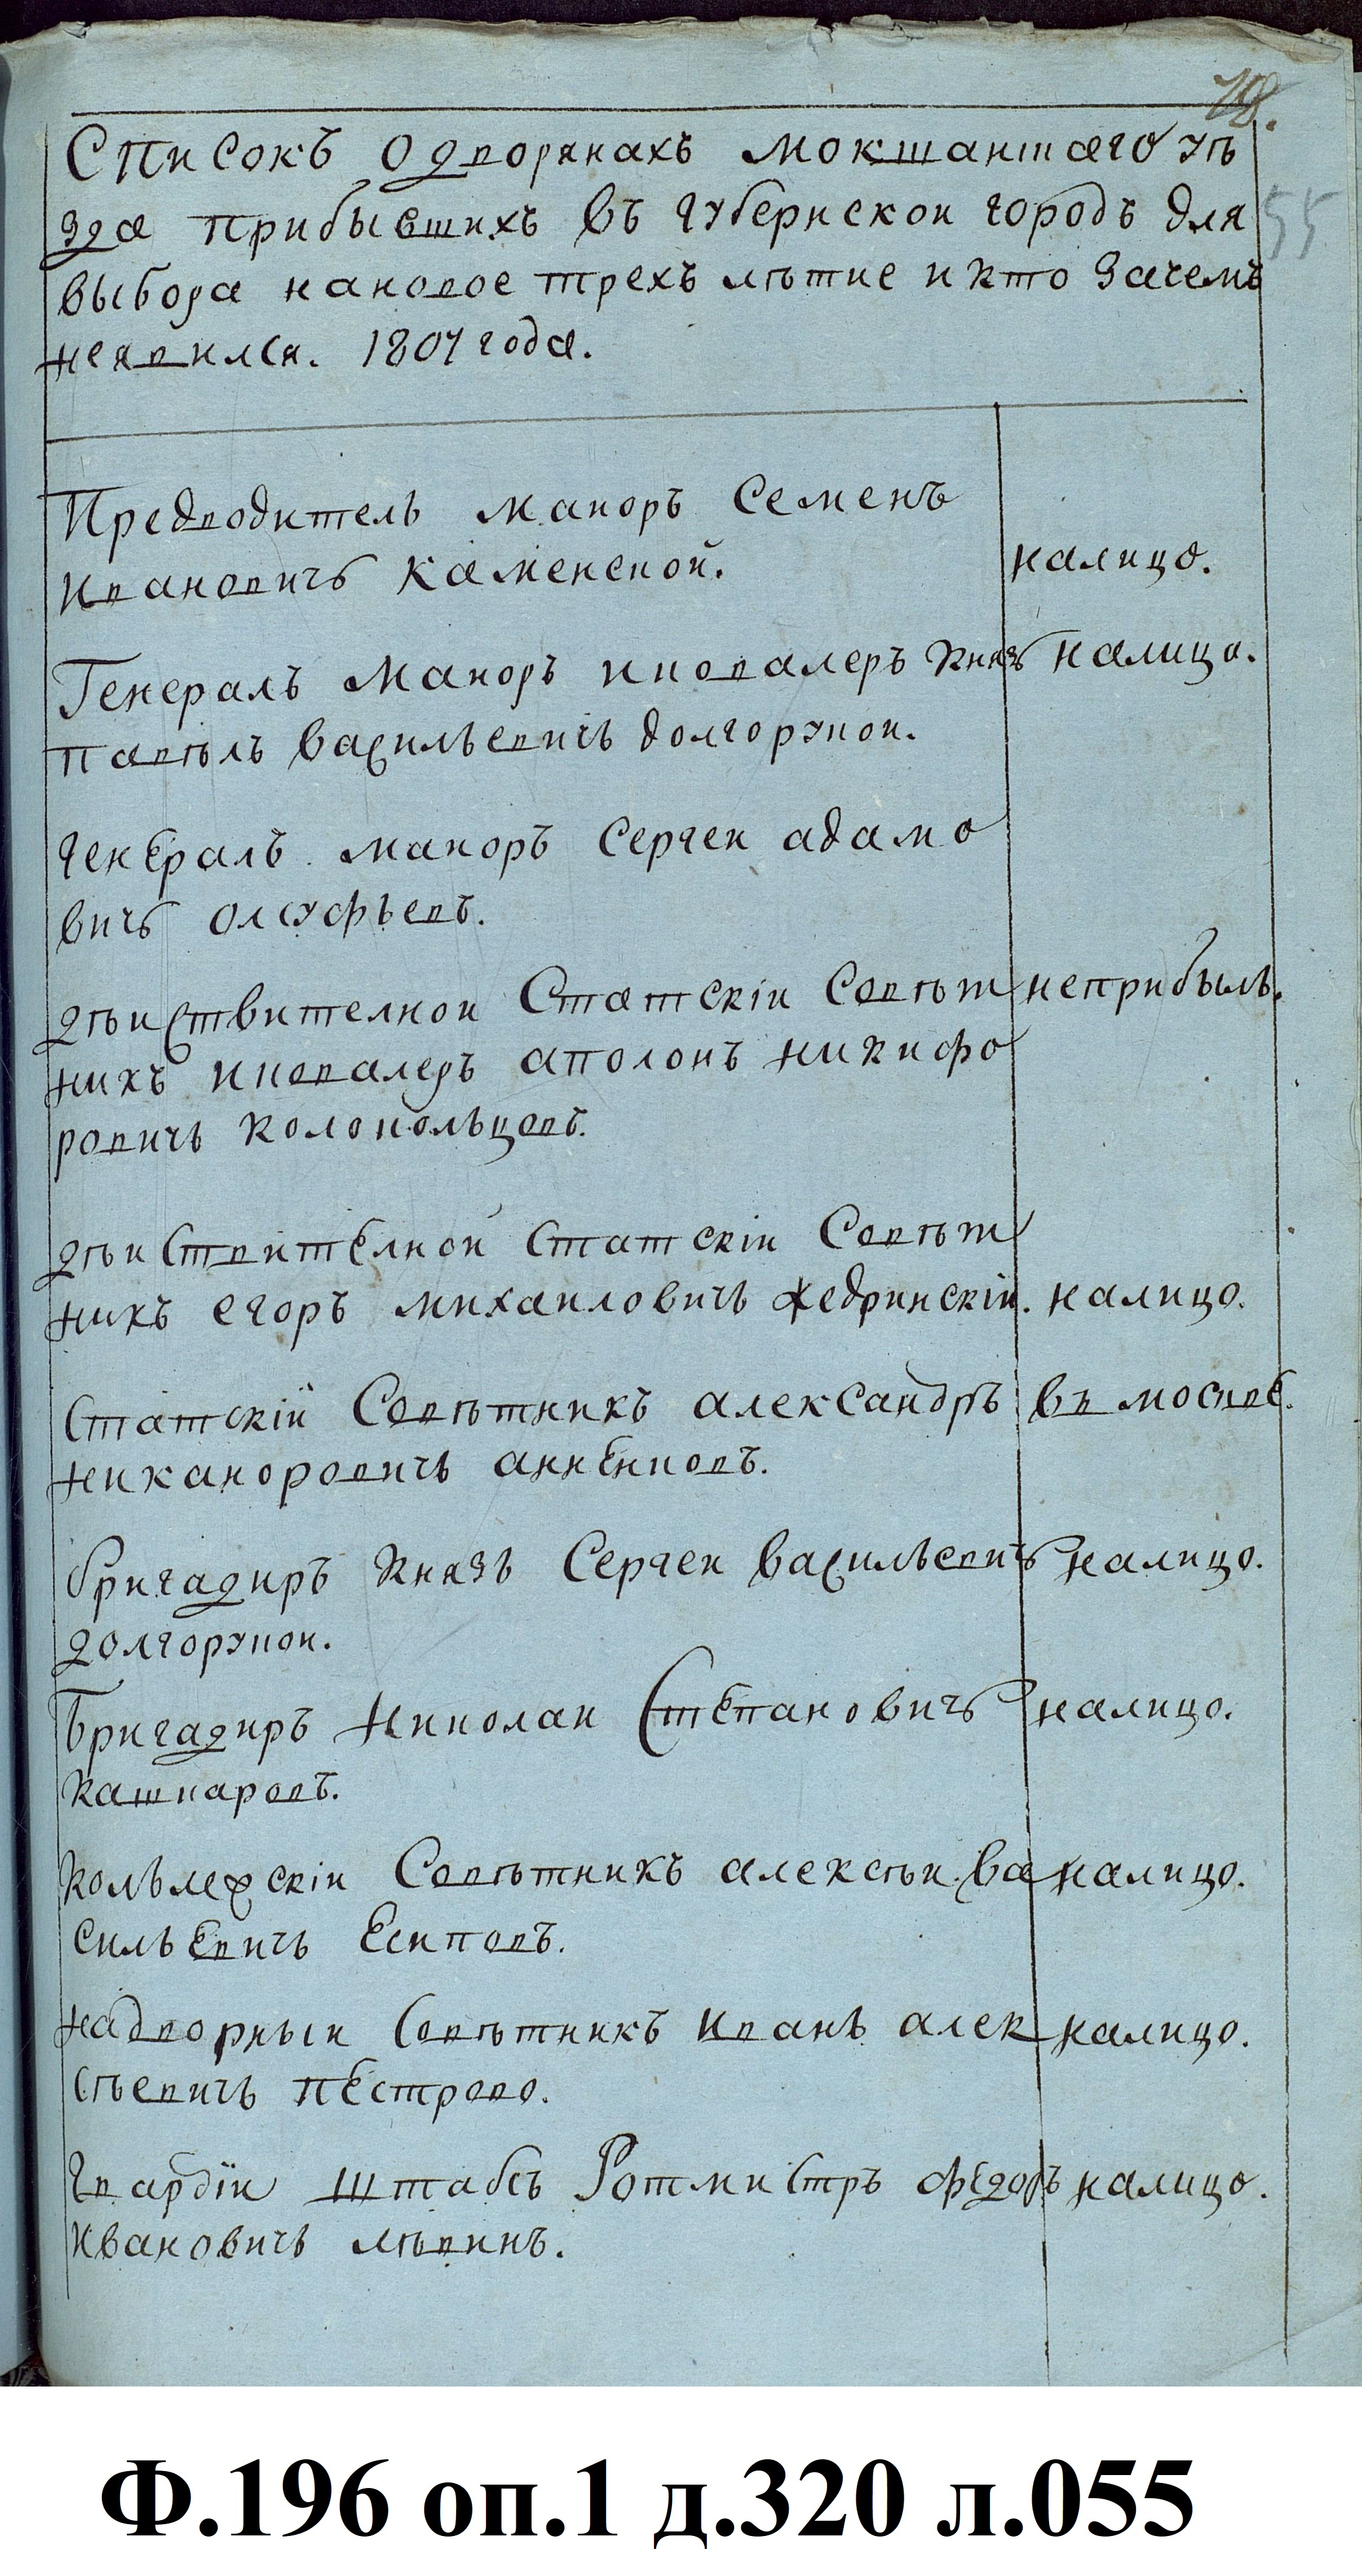 78.
55
Списокъ одворянахъ мокшаншаго уѣ
зда прибывшихъ въ губернскои городъ для
выбора нановое трехъ лѣтие и кто Зачемъ
неявился. 1807 года.
Предводитель маиоръ Семенъ
Ивановичъ Каменской. налицо.
Генералъ Маиоръ иковалеръ Князъ налицо.
павѣлъ Васильевичъ долгорукои.
генералъ маиоръ Сергеи адамо
вичъ олсуфьевъ.
дѣиствителнои Статскіи Совѣт неприбылъ.
никъ икавалеръ аполонъ никифо
ровичь Колокольцовъ.
дѣиствителной Статскіи Совѣт
никъ егоръ михаиловичъ жедринскіи. налицо.
Статскіи Совѣтникъ александръ въ москве.
никаноровичъ анненковъ.
бригадиръ Князь Сергеи васильевичъ налицо.
долгорукои.
Бригадиръ николаи Степановичъ налицо.
Кашкаровъ.
Колълежскіи Совѣтникъ алексѣи Ва налицо.
сильевичь Есиповъ.
надворныи Совѣтникъ иванъ алек налицо.
сѣевичъ пестрово.
гвардіи штабсъ Ротмистръ фёдоръ налицо.
ивановичъ лѣвинъ.
Ф.196 оп.1 д.320 л.055